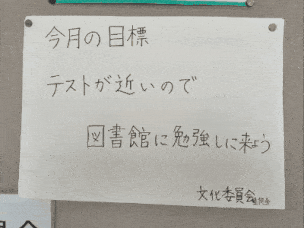 今月の目標
テストが近いので
図書館に勉強しに来よう
文化委員会